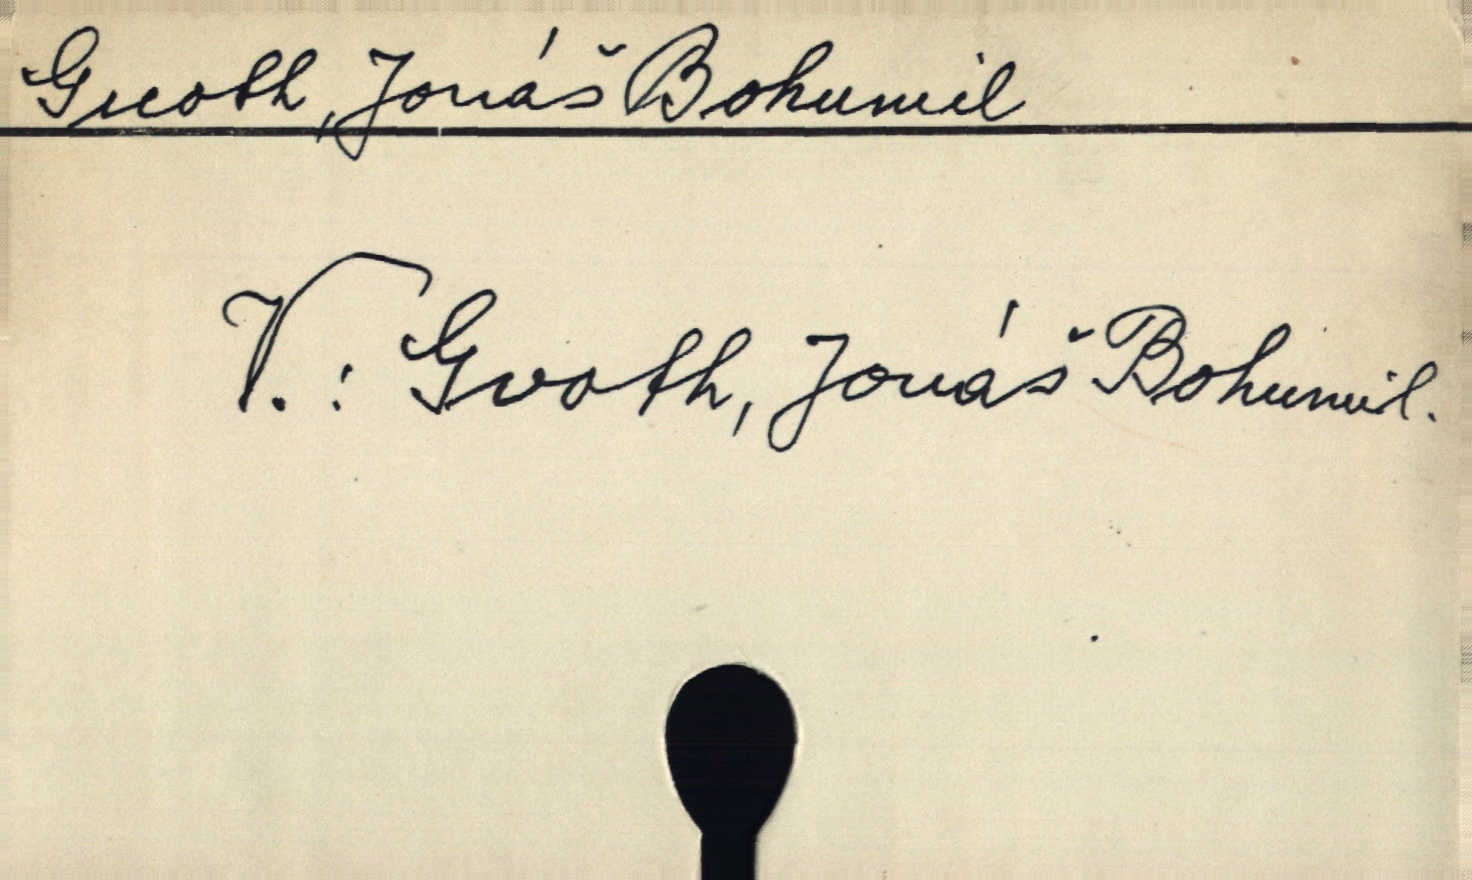 Guoth, Jonáš Bohumil
V.: Gvoth, Jonáš Bohumil.